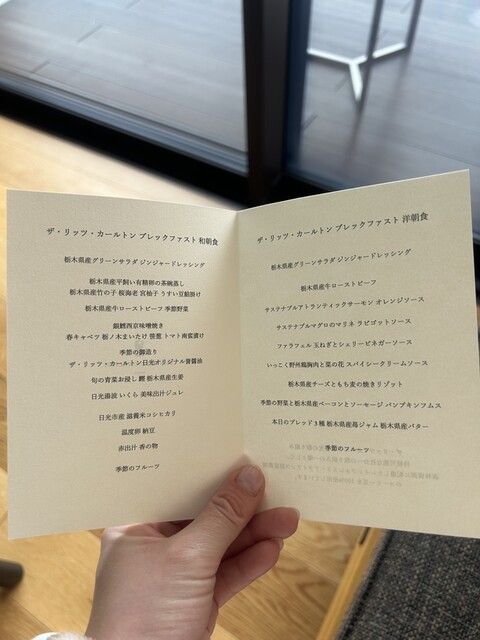 ザ・リッツ・カールトン ブレックファスト 和朝食
栃木県産グリーンサラダ ジンジャードレッシング
栃木県産平飼い有精卵の茶碗蒸し
栃木県産竹の子 桜海老 宮柚子 うすい豆餡掛け
栃木県産牛ローストビーフ 季節野菜
銀鱈西京味噌焼き
春キャベツ 栃ノ木まいたけ 笹葱 トマト南蛮漬け
季節の御造り
ザ・リッツ・カールトン日光オリジナル醤油
旬の青菜お浸し 鰹 栃木県産生姜
日光湯波 いくら 美味出汁ジュレ
日光市産 滋養米コシヒカリ
温度卵 納豆
赤出汁 香の物
季節のフルーツ
ザ・リッツ・カールトン ブレックファスト 洋朝食
栃木県産グリーンサラダ ジンジャードレッシング
栃木県産牛ローストビーフ
サステナブルアトランティックサーモン オレンジソース
サステナブルマグロのマリネ ラビゴットソース
ファラフェル 玉ねぎとシェリービネガーソース
いっこく野州鶏胸肉と菜の花 スパイシークリームソース
栃木県産チーズともち麦の焼きリゾット
季節の野菜と栃木県産ベーコンとソーセージ パンプキンフムス
本日のブレッド3種 栃木県産苺ジャム 栃木県産バター
季節のフルーツ